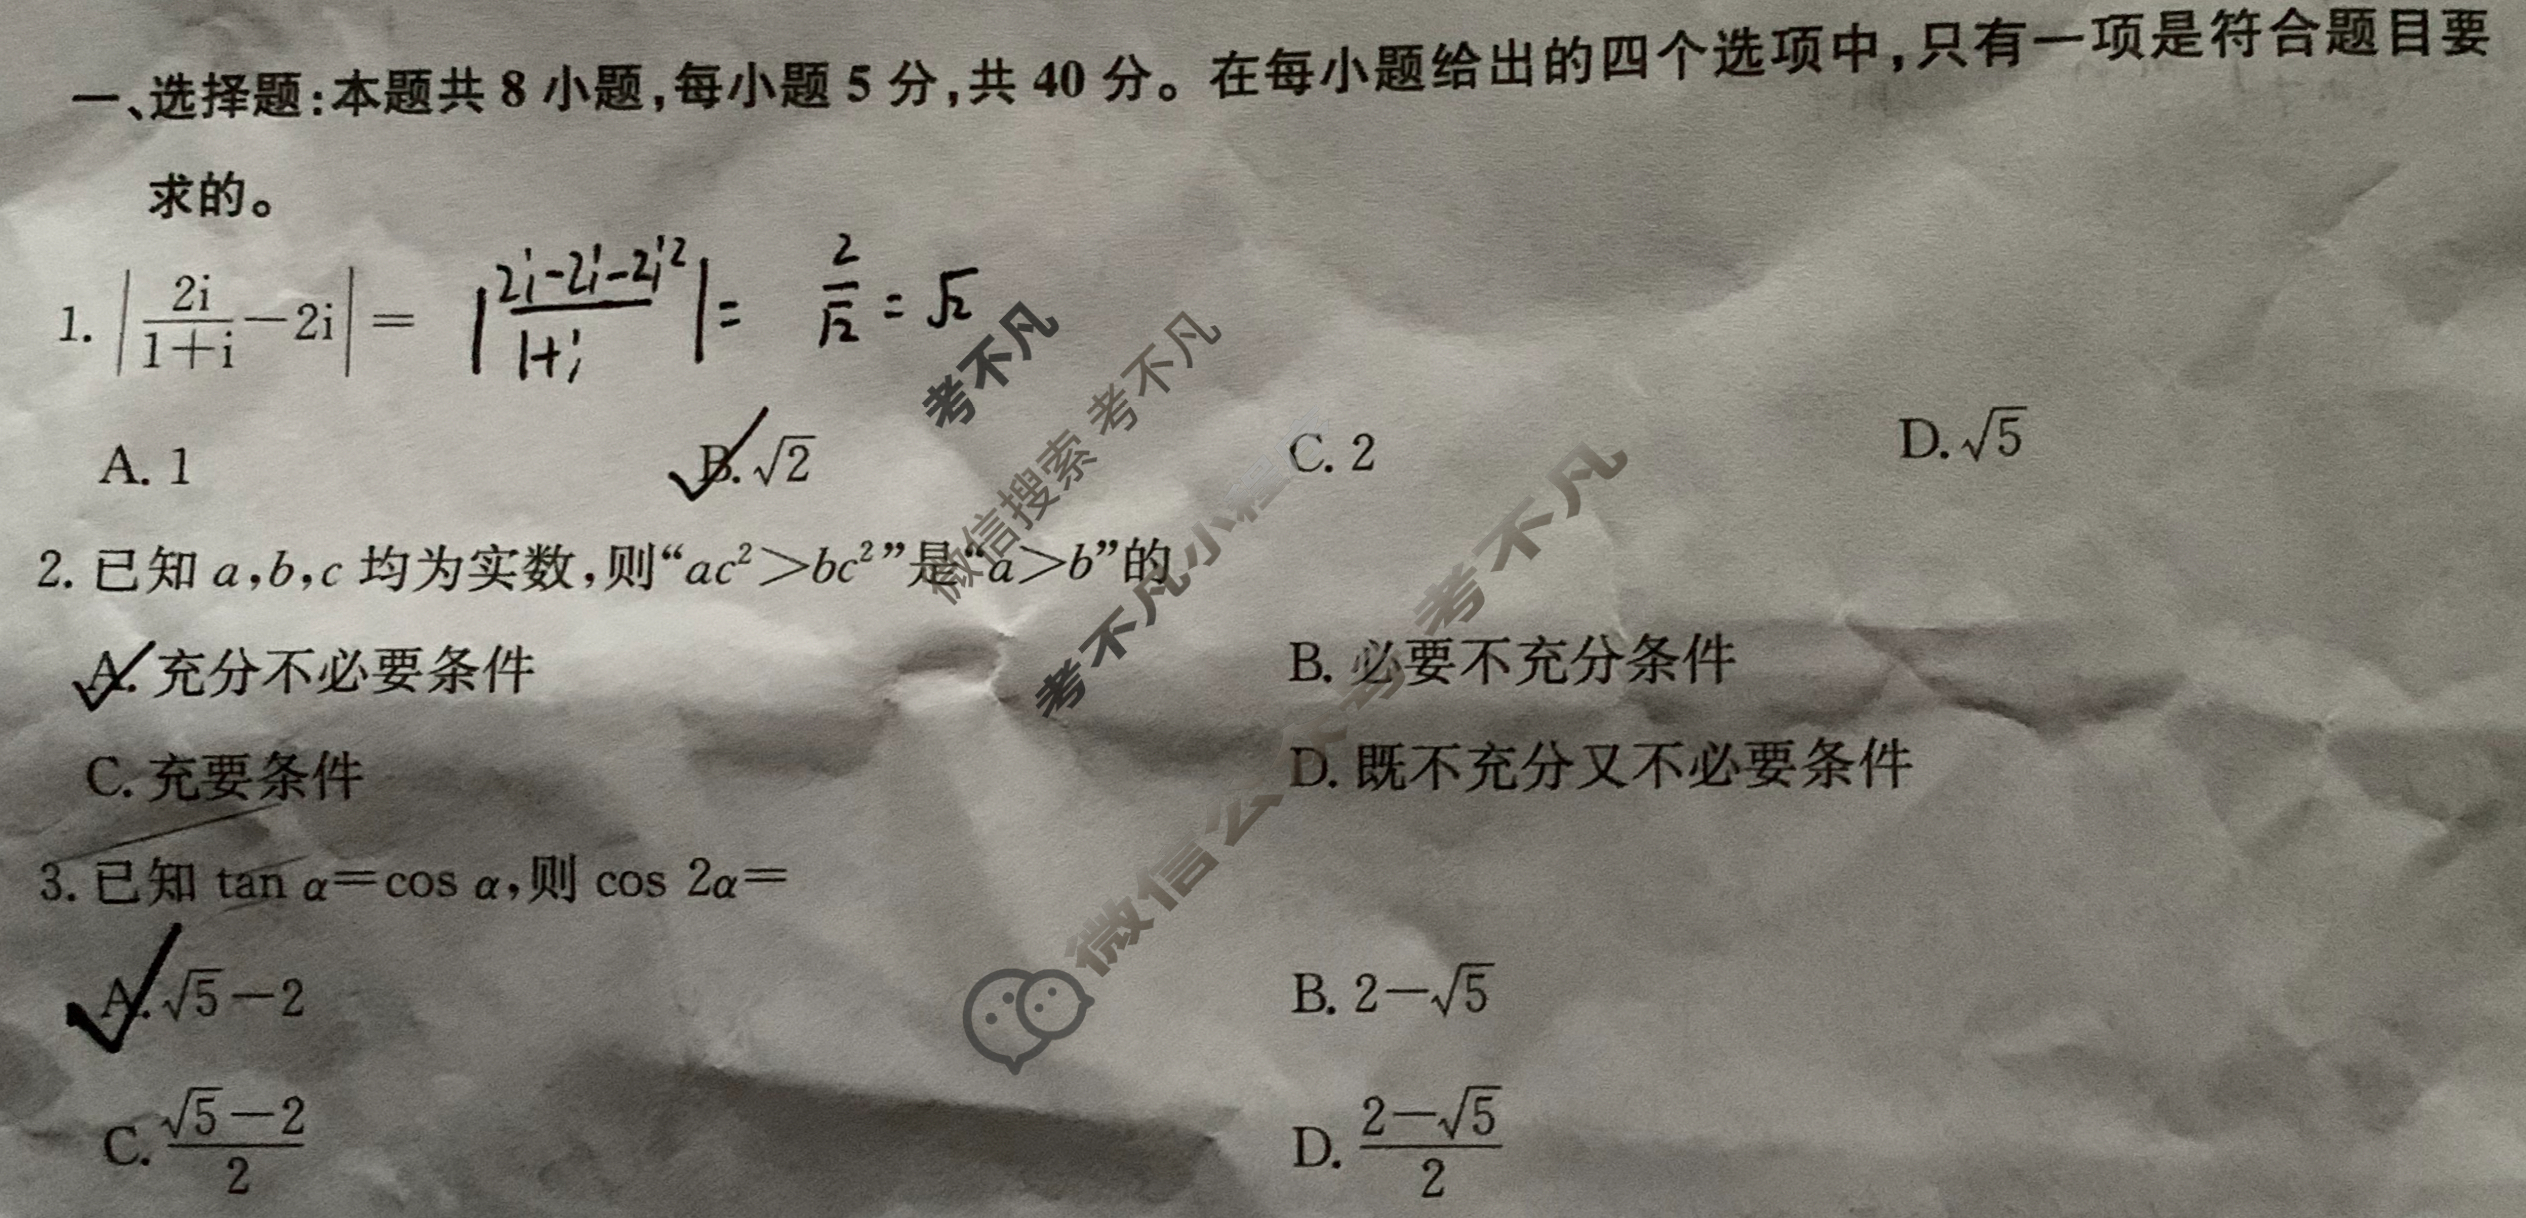 一、选择题:本题共 8 小题,每小题 5 分,共 40 分。在每小题给出的四个选项中,只有一项是符合题目要
求的。
1. |2i/(1+i)-2i|= |(2i-2i-2i²)/(1+i)|= 2/√2 = √2
A. 1 B. √2 C. 2 D. √5
2. 已知 a,b,c 均为实数,则“ac²>bc²”是“a>b”的
A. 充分不必要条件 B. 必要不充分条件
C. 充要条件 D. 既不充分又不必要条件
3. 已知 tan α=cos α,则 cos 2α=
A. √5-2 B. 2-√5
C. (√5-2)/2 D. (2-√5)/2
考不凡
微信搜索 考不凡
考不凡小程
微信公众号 考不凡